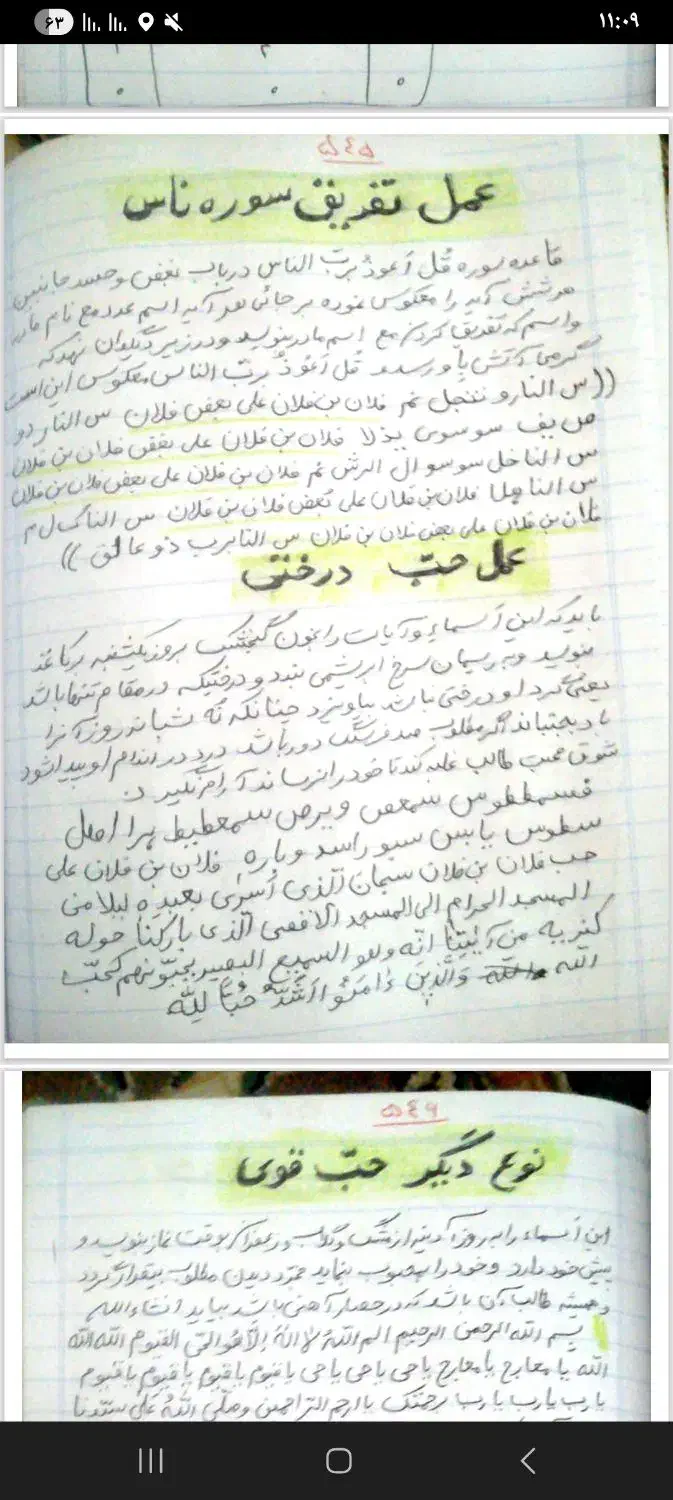 ۶۳
۱۱:۰۹
۵٤۵
عمل تفریق سوره ناس
قاعده سوره قُل اَعوذُ بربّ الناس در باب بغض و حسد جانبین
هر شش آیه را معکوس نموده بر جائی هر آیه اسم عدد مع نام مادر
و اسم که تفریق کردن مع اسم مادر بنویسد و در زیر دیگدان نهد که
گرمی آتش با و رسد و قُل اَعُوذُ بربّ الناس معکوس این است
((س النار و نتجل نم فلان بن فلان علی بغض فلان س النار دو
ص یف سوسوی یذلا فلان بن فلان علی بغض فلان بن فلان
س الناخل سوسوال الرش نم فلان بن فلان علی بغض فلان بن فلان
س الناهلا فلان بن فلان علی بغض فلان بن فلان س الناک ل م
فلان بن فلان علی بغض فلان بن فلان س النابرب ذوعا لق ))
عمل حبّ درختی
باید که این اَسماء و آیات را بخون گنجشک بروز یکشنبه بر کاغذ
بنویسد و به ریسمان سرخ ابریشمی بندد و درختیکه در مقام تنها باشد
یعنی گرد او درختی نباشد بیاویزد چنانکه نُه شبانه روز آنرا
باد بجنباند اگر مطلوب صد فرسنگ دور باشد درد در اندام او پیدا شود
شوق محبت طالب غلبه کند تا خود را نرساند آرام نگیرد
فسمططوس سمعص وبرص سمعطیط هرا اصل
سطوس یا بس سبوراسد وباره فلان بن فلان علی
حب فلان بن فلان سبحان الّذی اُسرٰی بعبدِه لیلا من
المسجد الحرام الی المسجد الاقصی الّذی بارکنا حوله
لنریه من آیٰتِنٰا انّه و هو السمیع البصیر یحبّونهم کحُبّ
الله والله وَالَّذِینَ ءٰامَنُوا اَشَدُّ حُبّاً لِلّٰه
۵٤٦
نوع دیگر حبّ قوی
این اَسماء را بروز آدینه از مشک و گلاب و زعفران بوقت نماز بنویسد و
پیش خود دارد و خود را بمحبوب بنماید بمجرّد دیدن مطلوب بیقرار گردد
و همیشه طالب آن باشد که در حصار آهنی باشد بیاید انشاءالله
بسم الله الرحمن الرحیم الم الله لا الهَ الّا هو الحّی القیوم الله الله
الله یا معارج یا معارج یا حی یا حی یا حی یا قیوم یا قیوم یا قیوم یا قیوم
یا رب یا رب یا رب برحمتک یا ارحم الراحمین وصلّی اللهُ علی سیّدنا